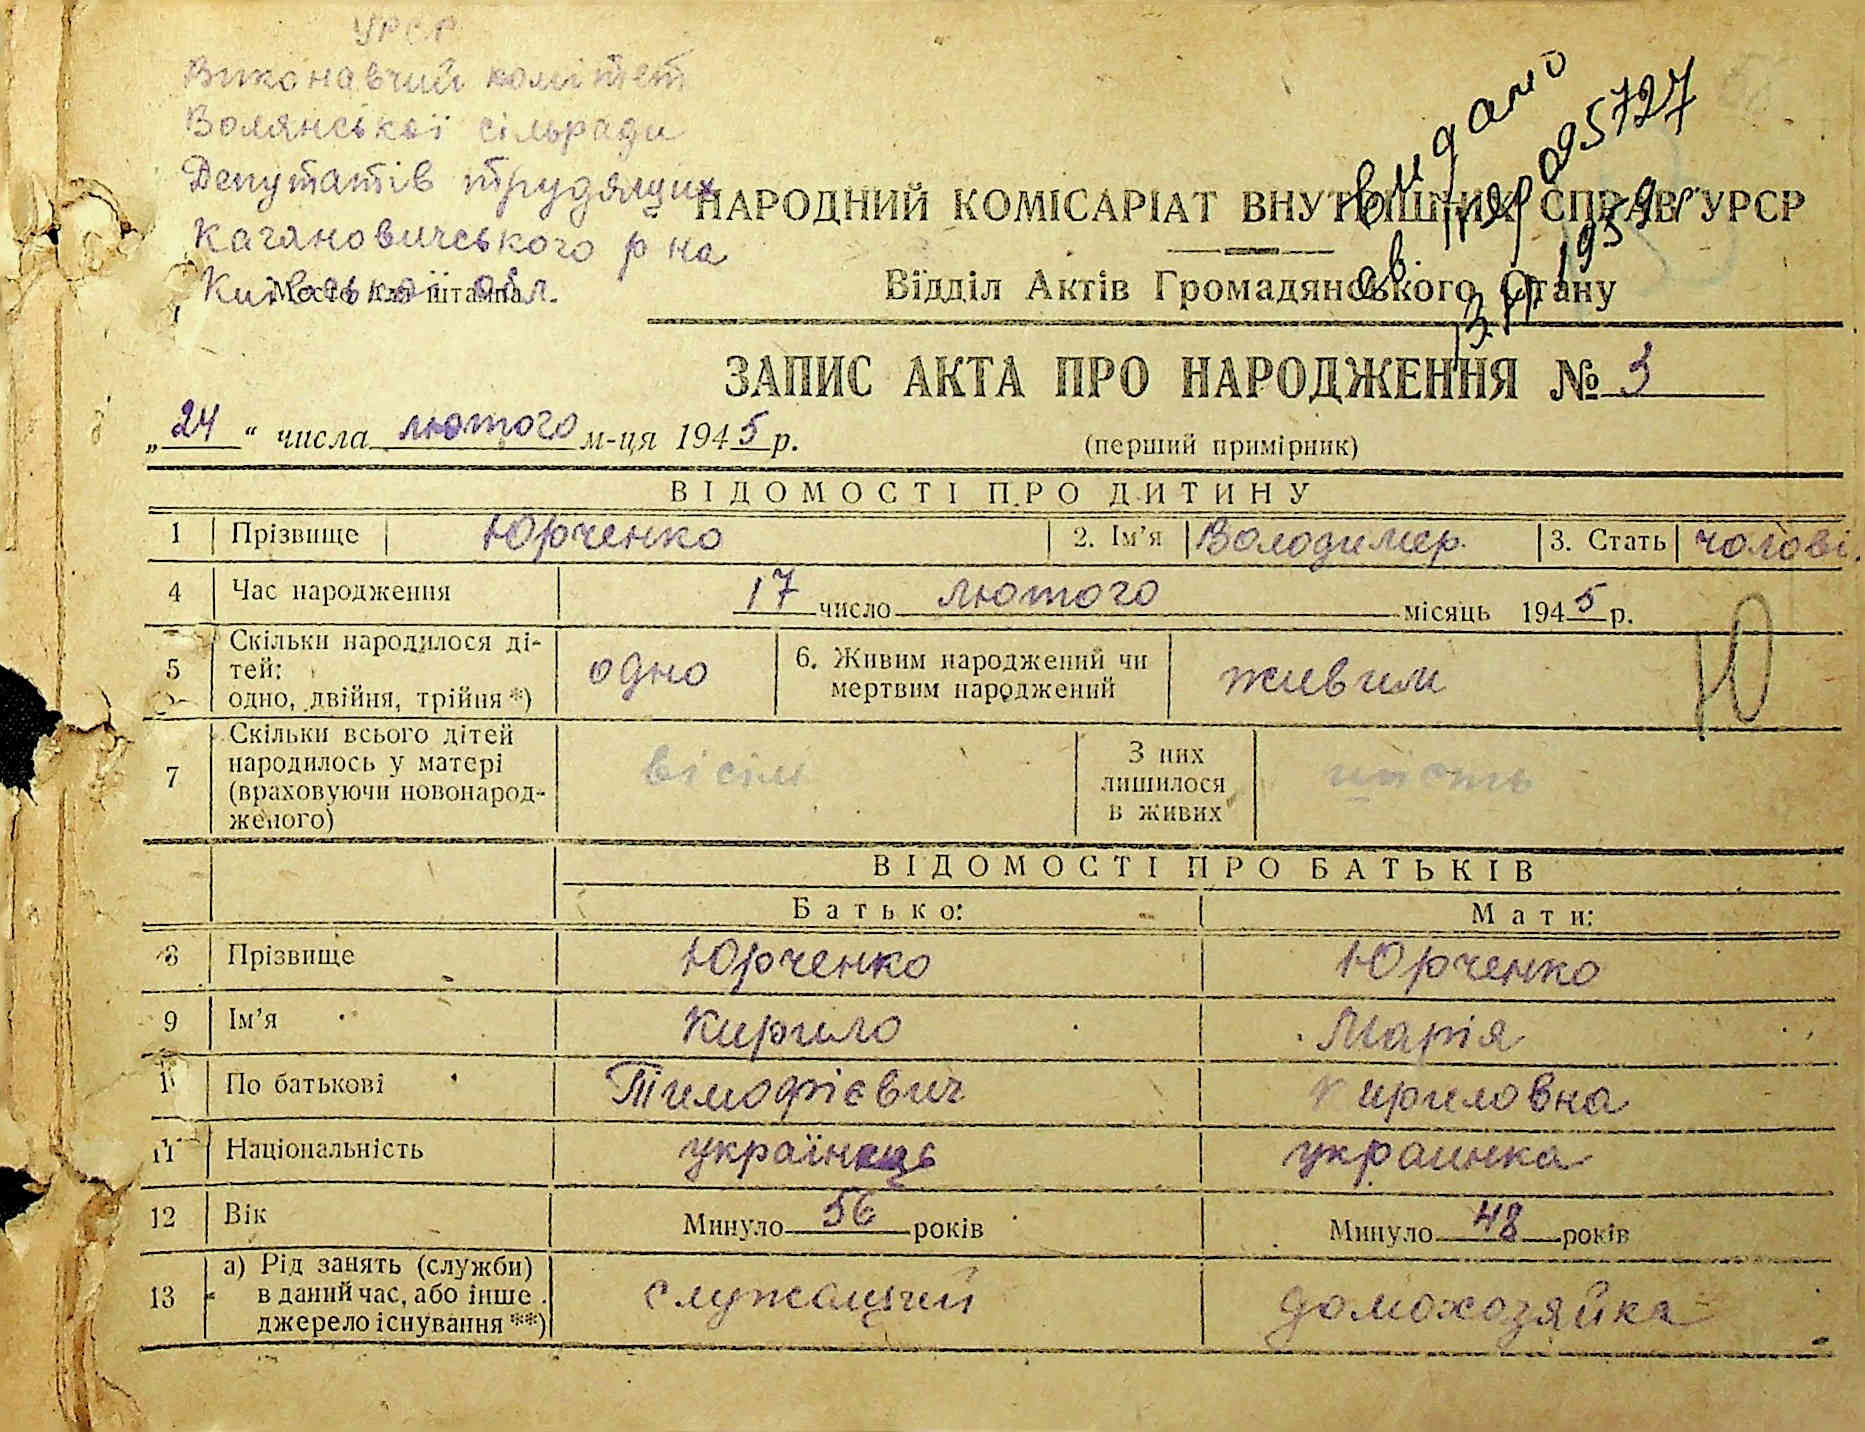 УРСР
Виконавчий комітет
Волянської сільради
Депутатів трудящих
Кагановичського р на
Київської обл.
Место для штампа
видано
095727
НАРОДНИЙ КОМІСАРІАТ ВНУТРІШНІХ СПРАВ УРСР
Відділ Актів Громадянського Стану
ЗАПИС АКТА ПРО НАРОДЖЕННЯ № 3
„24“ числа лютого м-ця 1945 р. (перший примірник)
ВІДОМОСТІ ПРО ДИТИНУ
1 Прізвище Юрченко 2. Ім'я Володимер 3. Стать чолові.
4 Час народження 17 число лютого місяць 1945 р.
5 Скільки народилося ді-
тей:
одно, двійня, трійня *) одно 6. Живим народжений чи
мертвим народжений живим
Ю
7 Скільки всього дітей
народилось у матері
(враховуючи новонарод-
женого) вісім З них
лишилося
в живих шість
ВІДОМОСТІ ПРО БАТЬКІВ
Батько: Мати:
8 Прізвище Юрченко Юрченко
9 Ім'я Кирило Марія
10 По батькові Тимофієвич Кириловна
11 Національність українець украинка
12 Вік Минуло 56 років Минуло 48 років
13 а) Рід занять (служби)
в даний час, або інше
джерело існування **) служащий домохозяйка